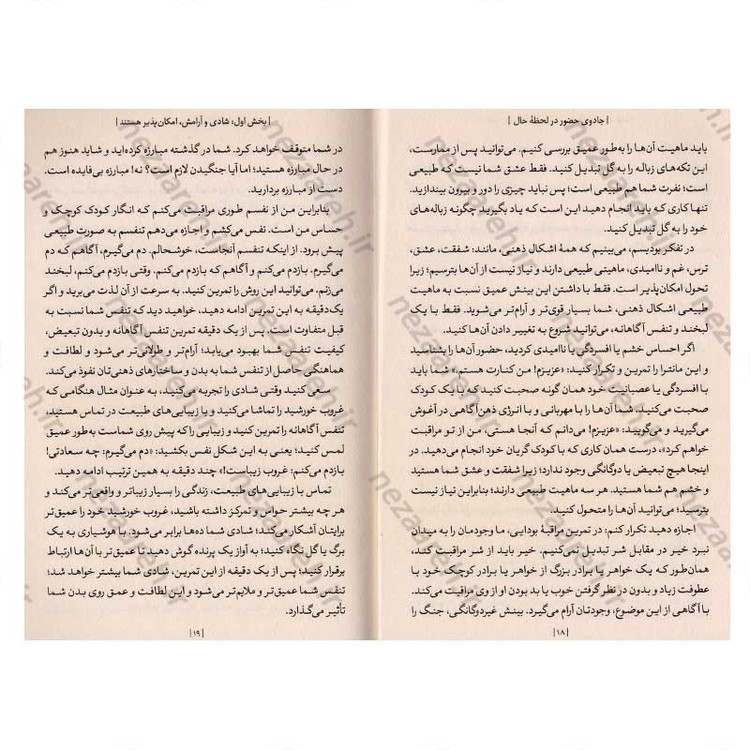 | جادوی حضور در لحظهٔ حال |
باید ماهیت آن‌ها را به‌طور عمیق بررسی کنیم. می‌توانید پس از ممارست،
این تکه‌های زباله را به گل تبدیل کنید. فقط عشق شما نیست که طبیعی
است؛ نفرت شما هم طبیعی است؛ پس نباید چیزی را دور و بیرون بیندازید.
تنها کاری که باید انجام دهید این است که یاد بگیرید چگونه زباله‌های
خود را به گل تبدیل کنید.
در تفکر بودیسم، می‌بینیم که همهٔ اشکال ذهنی، مانند: شفقت، عشق،
ترس، غم و ناامیدی، ماهیتی طبیعی دارند و نیاز نیست از آن‌ها بترسیم؛ زیرا
تحول امکان‌پذیر است. فقط با داشتن این بینش عمیق نسبت به ماهیت
طبیعی اشکال ذهنی، شما بسیار قوی‌تر و آرام‌تر می‌شوید. فقط با یک
لبخند و تنفس آگاهانه، می‌توانید شروع به تغییر دادن آن‌ها کنید.
اگر احساس خشم یا افسردگی یا ناامیدی کردید، حضور آن‌ها را بشناسید
و این مانترا را تمرین و تکرار کنید: «عزیزم! من کنارت هستم» شما باید
با افسردگی یا عصبانیت خود همان گونه صحبت کنید که با یک کودک
صحبت می‌کنید. شما آن‌ها را با مهربانی و با انرژی ذهن‌آگاهی در آغوش
می‌گیرید و می‌گویید: «عزیزم! می‌دانم که آنجا هستی، من از تو مراقبت
خواهم کرد»، درست همان کاری که با کودک گریان خود انجام می‌دهید. در
اینجا هیچ تبعیض یا دوگانگی وجود ندارد؛ زیرا شفقت و عشق شما هستید
و خشم هم شما هستید. هر سه ماهیت طبیعی دارند؛ بنابراین نیاز نیست
بترسید؛ می‌توانید آن‌ها را متحول کنید.
اجازه دهید تکرار کنم: در تمرین مراقبهٔ بودایی، ما وجودمان را به میدان
نبرد خیر در مقابل شر تبدیل نمی‌کنیم. خیر باید از شر مراقبت کند،
همان‌طور که یک خواهر یا برادر بزرگ از خواهر یا برادر کوچک خود با
عطوفت زیاد و بدون در نظر گرفتن خوب یا بد بودن او از وی مراقبت می‌کند.
با آگاهی از این موضوع، وجودتان آرام می‌گیرد. بینش غیردوگانگی، جنگ را
| ۱۸ |
| بخش اول: شادی و آرامش، امکان‌پذیر هستند |
در شما متوقف خواهد کرد. شما در گذشته مبارزه کرده‌اید و شاید هنوز هم
در حال مبارزه هستید؛ اما آیا جنگیدن لازم است؟ نه! مبارزه بی‌فایده است.
دست از مبارزه بردارید.
بنابراین من از نفسم طوری مراقبت می‌کنم که انگار کودک کوچک و
حساس من است. نفس می‌کشم و اجازه می‌دهم تنفسم به صورت طبیعی
پیش برود. از اینکه تنفسم آنجاست، خوشحالم. دم می‌گیرم، آگاهم که دم
می‌گیرم. بازدم می‌کنم و آگاهم که بازدم می‌کنم. وقتی بازدم می‌کنم، لبخند
می‌زنم، می‌توانید این روش را تمرین کنید. به سرعت از آن لذت می‌برید و اگر
یک‌دقیقه به این تمرین ادامه دهید، خواهید دید که تنفس شما نسبت به
قبل متفاوت است. پس از یک دقیقه تمرین تنفس آگاهانه و بدون تبعیض،
کیفیت تنفس شما بهبود می‌یابد؛ آرام‌تر و طولانی‌تر می‌شود و لطافت و
هماهنگی حاصل از تنفس شما به بدن و ساختارهای ذهنی‌تان نفوذ می‌کند.
سعی کنید وقتی شادی را تجربه می‌کنید، به عنوان مثال هنگامی که
غروب خورشید را تماشا می‌کنید و یا زیبایی‌های طبیعت در تماس هستید،
تنفس آگاهانه را تمرین کنید و زیبایی را که پیش روی شماست به‌طور عمیق
لمس کنید؛ یعنی به این شکل نفس بکشید: «دم می‌گیرم: چه سعادتی!
بازدم می‌کنم: غروب زیباست!» چند دقیقه به همین ترتیب ادامه دهید.
تماس با زیبایی‌های طبیعت، زندگی را بسیار زیباتر و واقعی‌تر می‌کند و
هر چه بیشتر حواس و تمرکز داشته باشید، غروب خورشید خود را عمیق‌تر
برایتان آشکار می‌کند؛ شادی شما ده‌ها برابر می‌شود. با هوشیاری به یک
برگ یا گل نگاه کنید؛ به آواز یک پرنده گوش دهید تا عمیق‌تر با آن‌ها ارتباط
برقرار کنید؛ پس از یک دقیقه از این تمرین، شادی شما بیشتر خواهد شد؛
تنفس شما عمیق‌تر و ملایم‌تر می‌شود و این لطافت و عمق روی بدن شما
تأثیر می‌گذارد.
| ۱۹ |
nezareh.ir